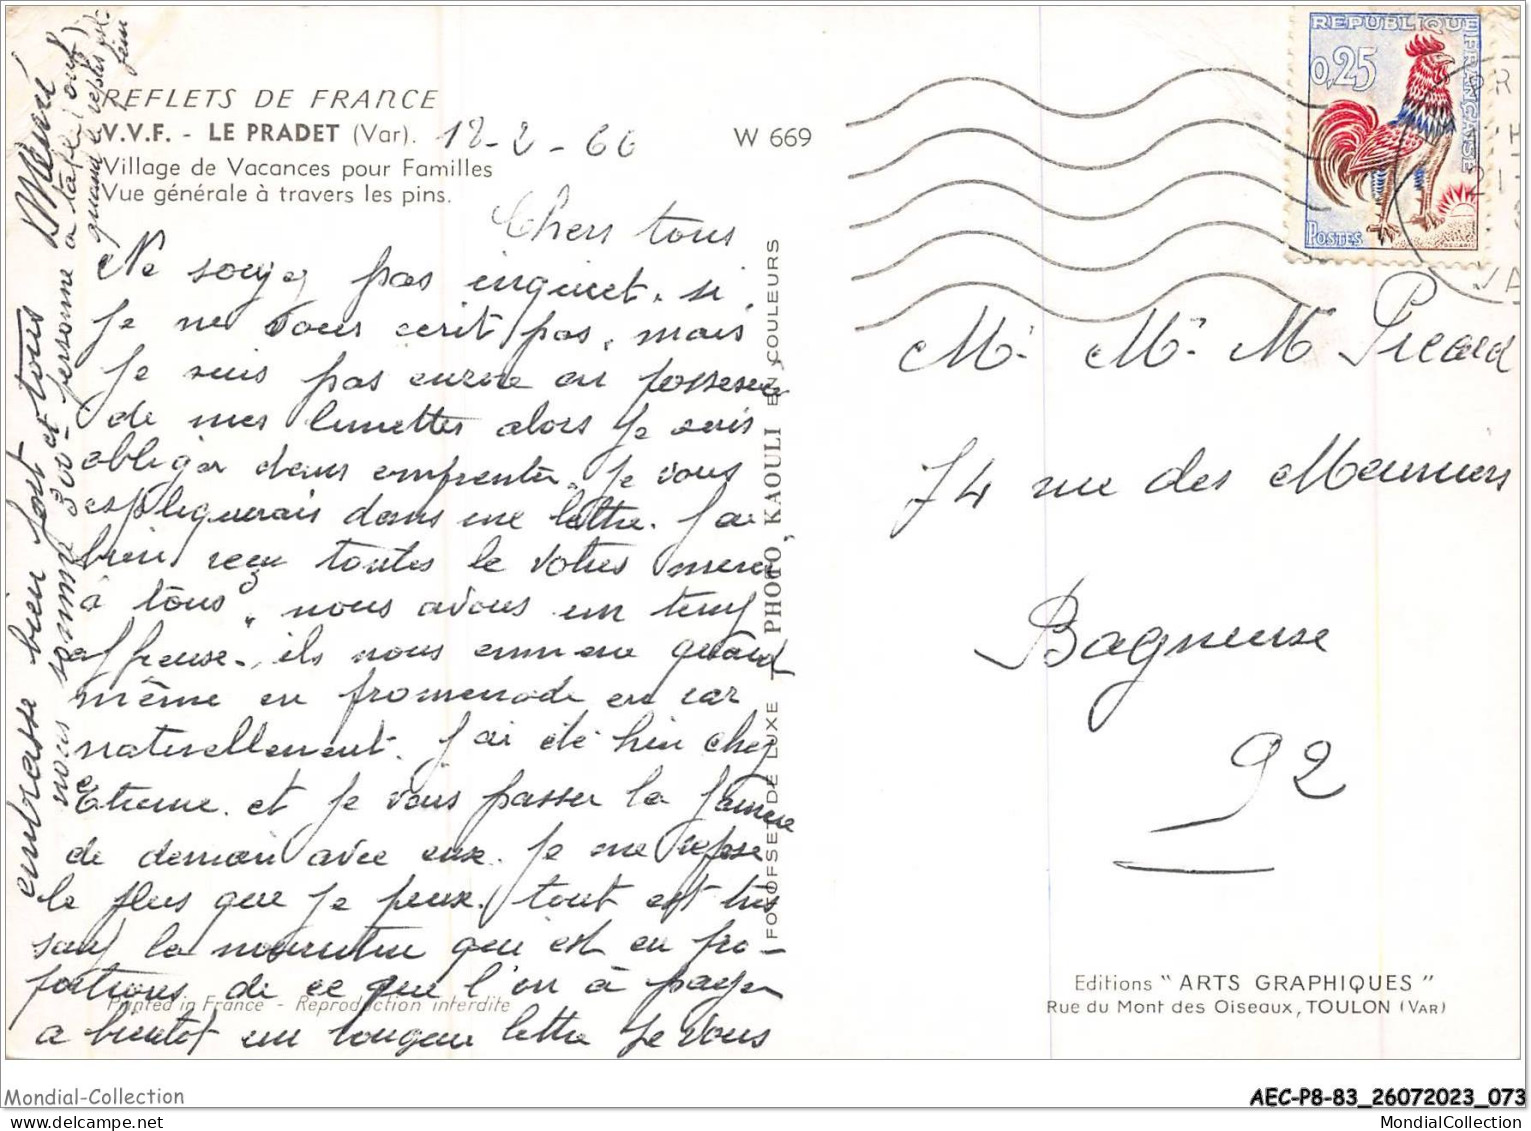 REFLETS DE FRANCE
V.V.F. - LE PRADET (Var). 18-2-66
W 669
Village de Vacances pour Familles
Vue générale à travers les pins.
Chers tous
Ne soyez pas inquiet. si
je ne vous écrit pas, mais
je suis pas encore en possession
de mes lunettes alors je suis
obliger d'en emprenter. je vous
expliquerais dans une lettre. j'ai
bien reçu toutes le votres merci
à tous, nous avons un temp
affreuse, ils nous emmene quand
même en promenade en car
naturellement. j'ai été hier chez
Etienne et je vous passer la
de demain avec eux. je me repose
le plus que je peux. tout est très
sauf la nourriture qui est en pro-
portions de ce que l'on à payer
a bientot un longeur lettre je vous
embrasse bien fort et tous Mémé
nous somme 300 personne a table (
quand
REPUBLIQUE FRANÇAISE
0,25
POSTES
PR
21
VA
Mr Me M Picard
74 rue des Meuniers
Bagneuse
92
FOTOFSET DE LUXE - PHOTO, KAOULI EN COULEURS
Printed in France - Reproduction interdite
Editions "ARTS GRAPHIQUES"
Rue du Mont des Oiseaux, TOULON (VAR)
Mondial-Collection
AEC-P8-83_26072023_073
MondialCollection